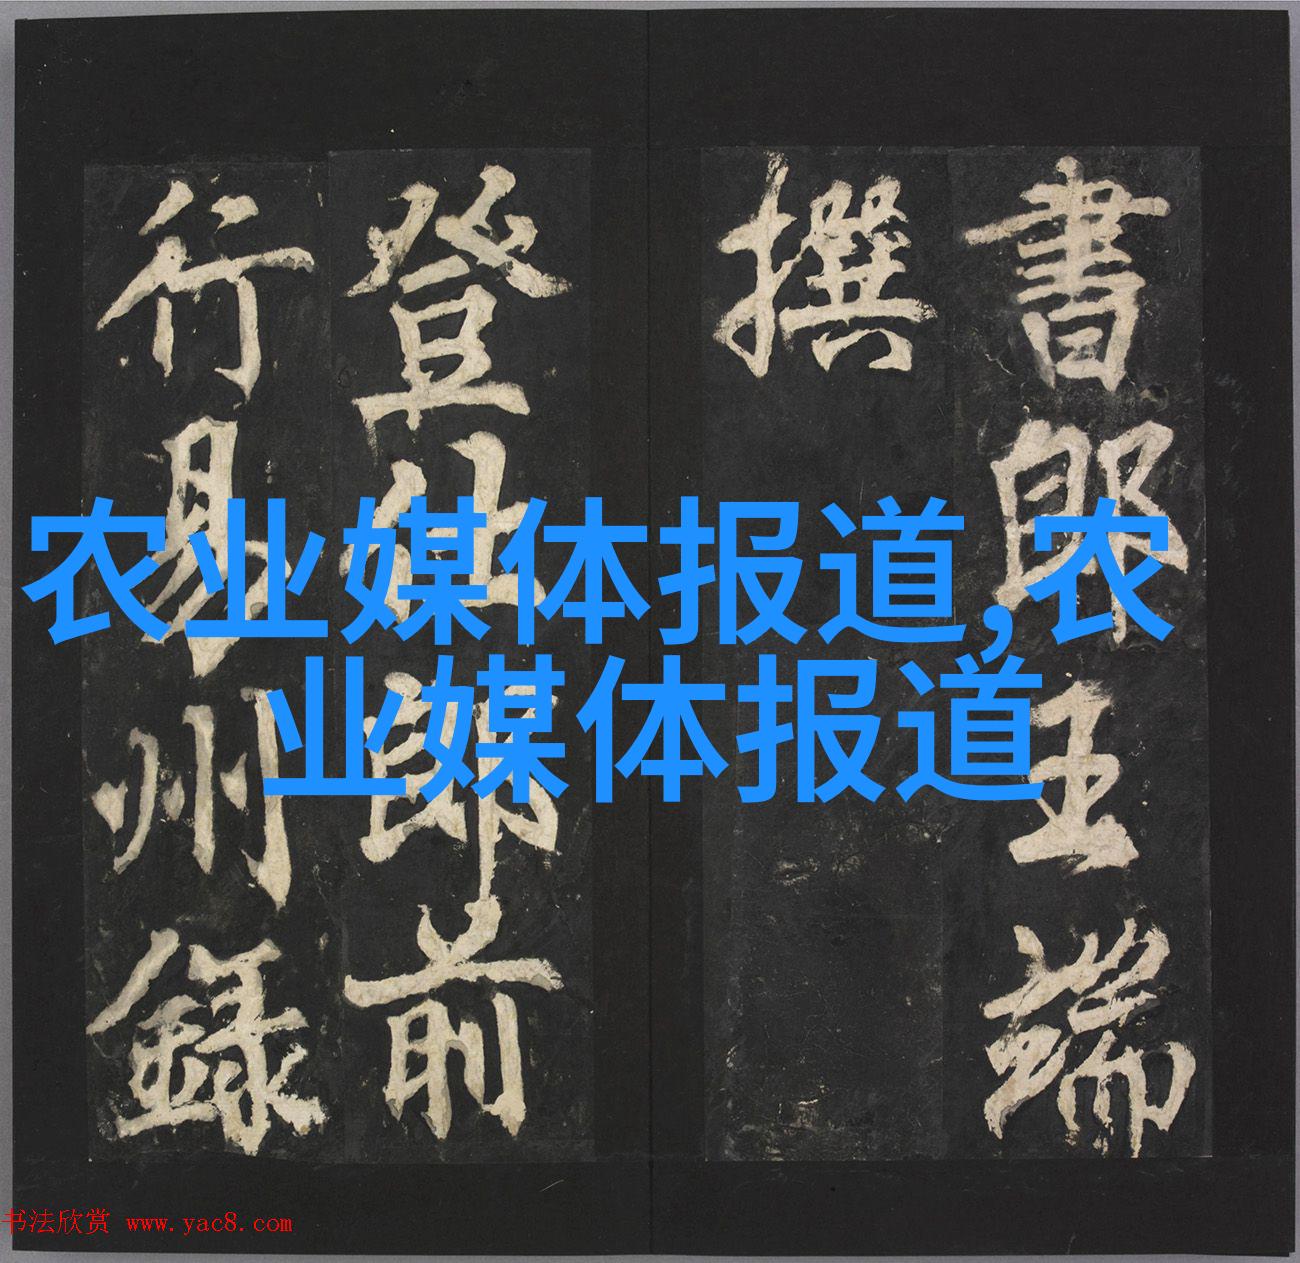 書郎王端
撰
登仕郎前
行易州録
农业媒体报道,农
业媒体报道
书法欣赏 www.yac8.com